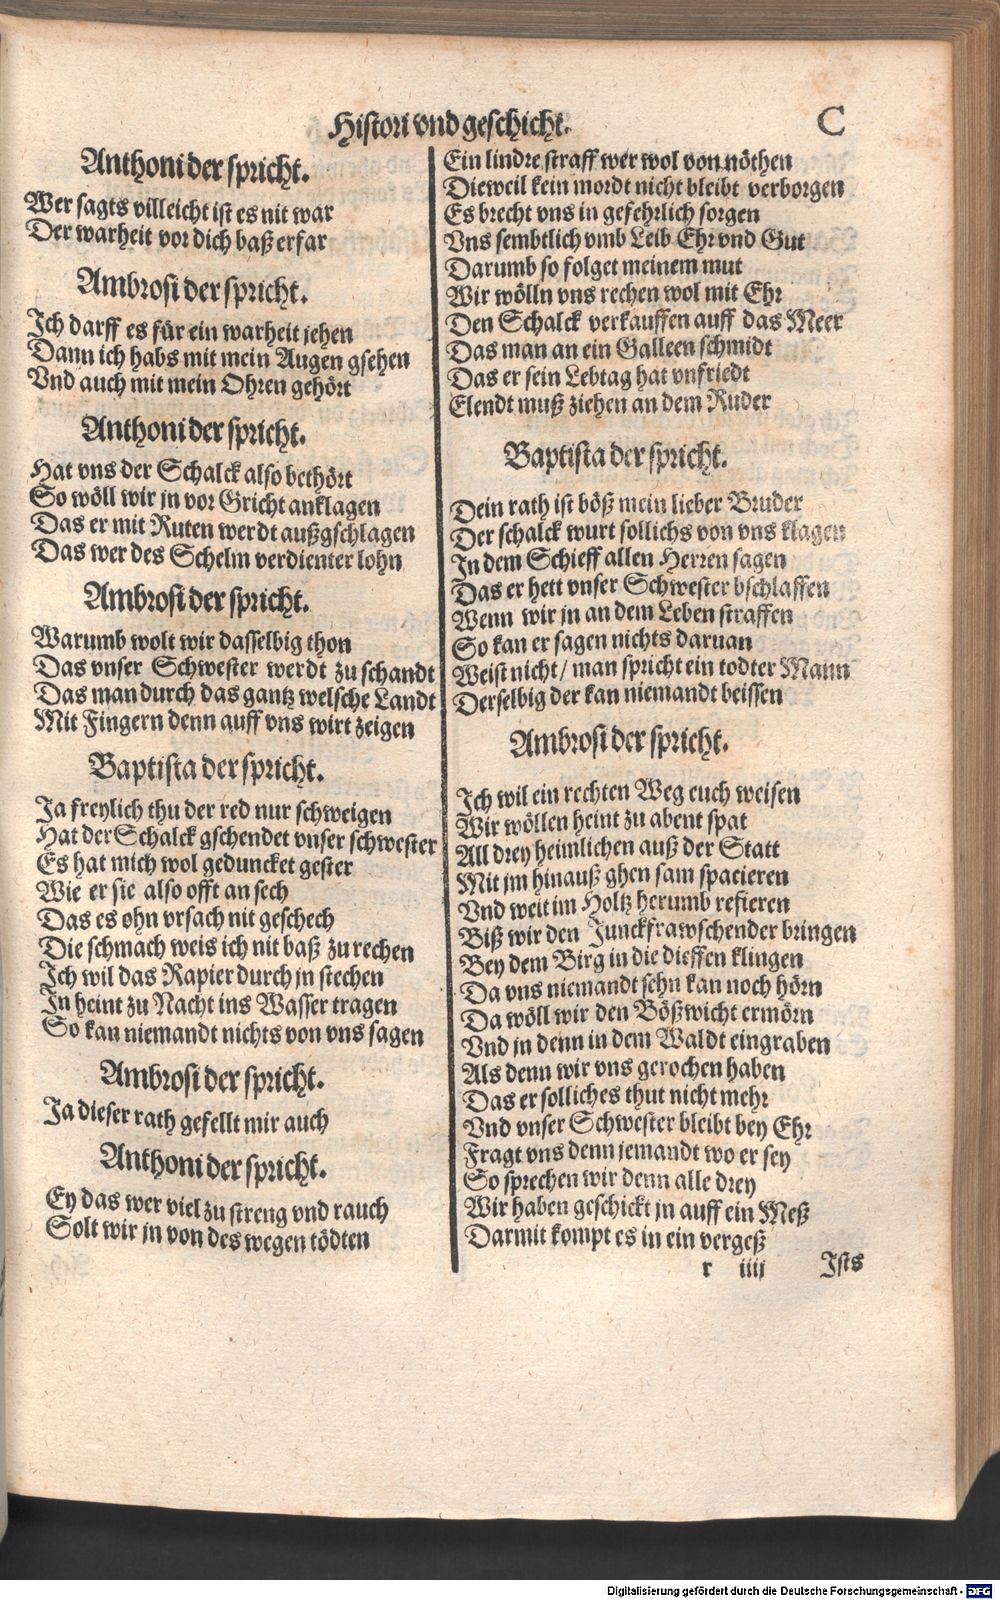 Histori vnd geschicht. C
Anthoni der spricht.
Wer sagts villeicht ist es nit war
Der warheit vor dich baß erfar
Ambrosi der spricht.
Ich darff es für ein warheit jehen
Dann ich habs mit mein Augen gsehen
Vnd auch mit mein Ohren gehört
Anthoni der spricht.
Hat vns der Schalck also bethört
So wöll wir jn vor Gricht anklagen
Das er mit Ruten werdt außgschlagen
Das wer des Schelm verdienter lohn
Ambrosi der spricht.
Warumb wolt wir dasselbig thon
Das vnser Schwester werdt zu schandt
Das man durch das gantz welsche Landt
Mit Fingern denn auff vns wirt zeigen
Baptista der spricht.
Ja freylich thu der red nur schweigen
Hat der Schalck gschendet vnser schwester
Es hat mich wol geduncket gester
Wie er sie also offt an sech
Das es ohn vrsach nit geschech
Die schmach weis ich nit baß zu rechen
Ich wil das Rapier durch jn stechen
In heint zu Nacht ins Wasser tragen
So kan niemandt nichts von vns sagen
Ambrosi der spricht.
Ja dieser rath gefellt mir auch
Anthoni der spricht.
Ey das wer viel zu streng vnd rauch
Solt wir jn von des wegen tödten
Ein lindre straff wer wol von nöthen
Dieweil kein mordt nicht bleibt verborgen
Es brecht vns in gefehrlich sorgen
Vns sembtlich vmb Leib Ehr vnd Gut
Darumb so folget meinem mut
Wir wölln vns rechen wol mit Ehr
Den Schalck verkauffen auff das Meer
Das man an ein Galleen schmidt
Das er sein Lebtag hat vnfriedt
Elendt muß ziehen an dem Ruder
Baptista der spricht.
Dein rath ist böß mein lieber Bruder
Der schalck wurt sollichs von vns klagen
In dem Schieff allen Herren sagen
Das er hett vnser Schwester bschlaffen
Wenn wir jn an dem Leben straffen
So kan er sagen nichts daruan
Weist nicht / man spricht ein todter Mann
Derselbig der kan niemandt beissen
Ambrosi der spricht.
Ich wil ein rechten Weg euch weisen
Wir wöllen heint zu abent spat
All drey heimlichen auß der Statt
Mit jm hinauß ghen sam spacieren
Vnd weit im Holtz herumb refieren
Biß wir den Junckfrawschender bringen
Bey dem Birg in die dieffen klingen
Da vns niemandt sehn kan noch hörn
Da wöll wir den Bößwicht ermörn
Vnd jn denn in dem Waldt eingraben
Als denn wir vns gerochen haben
Das er solliches thut nicht mehr
Vnd vnser Schwester bleibt bey Ehr
Fragt vns denn jemandt wo er sey
So sprechen wir denn alle drey
Wir haben geschickt jn auff ein Meß
Darmit kompt es in ein vergeß
r iiij Ists
Digitalisierung gefördert durch die Deutsche Forschungsgemeinschaft - DFG